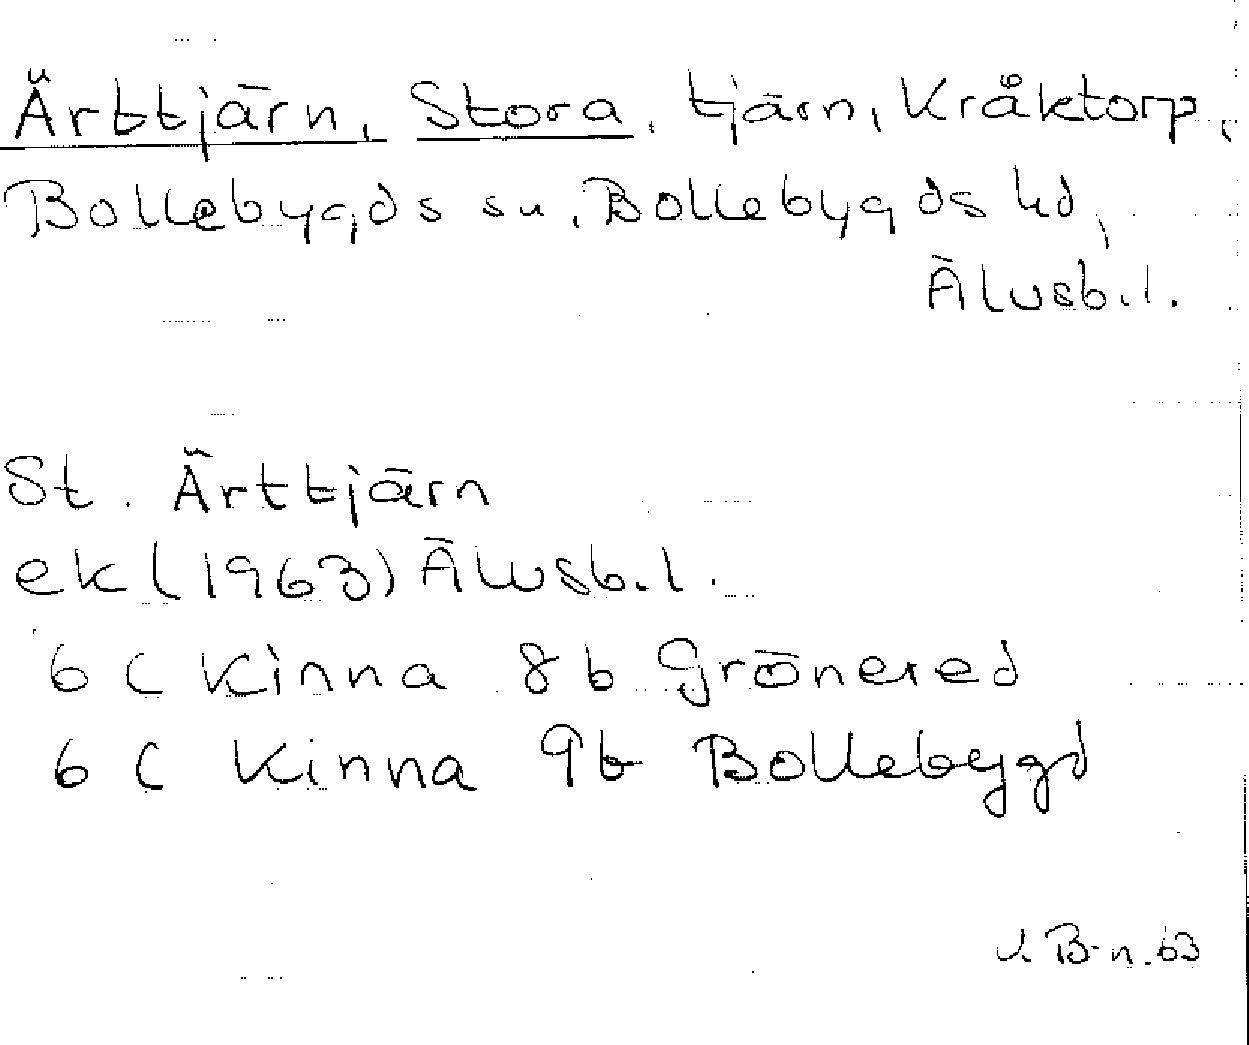 Ärttjärn, Stora, tjärn, Kråktorp,
Bollebygds sn, Bollebygds hd,
Älvsb. l.
St. Ärttjärn
ekl (1963) Älvsb. l.
6 C Kinna 8b Grönered
6 C Kinna 9b Bollebygd
B-n. 63